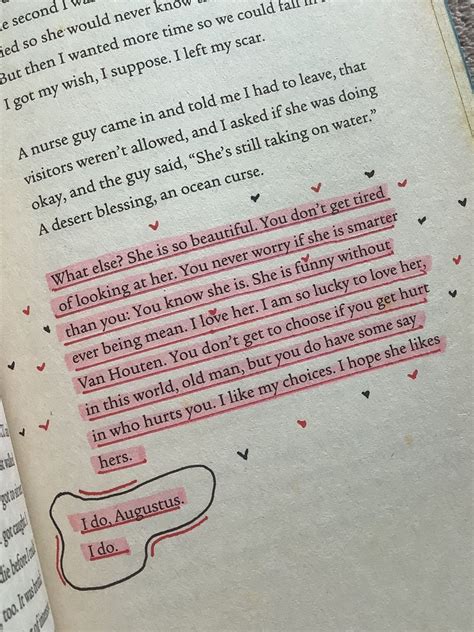 e second I wa
ied so she would never know
But then I wanted more time so we could fall in
I got my wish, I suppose. I left my scar.
A nurse guy came in and told me I had to leave, that
visitors weren't allowed, and I asked if she was doing
okay, and the guy said, "She's still taking on water."
A desert blessing, an ocean curse.
What else? She is so beautiful. You don't get tired
of looking at her. You never worry if she is smarter
than you: You know she is. She is funny without
ever being mean. I love her. I am so lucky to love her,
Van Houten. You don't get to choose if you get hurt
in this world, old man, but you do have some say
in who hurts you. I like my choices. I hope she likes
hers.
I do, Augustus.
I do.
got caught
die before I
, too. It was